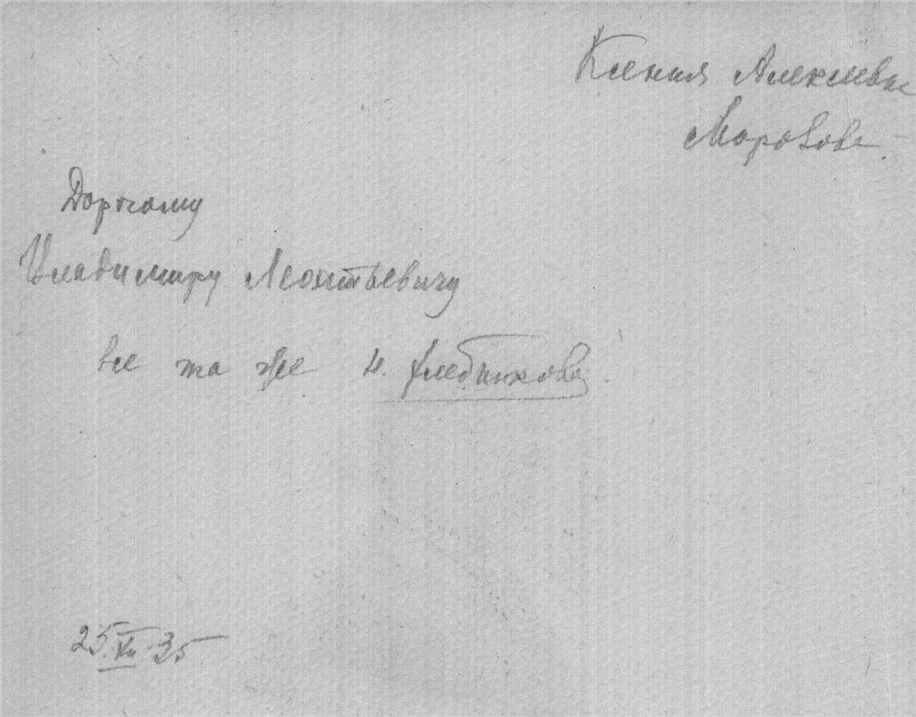 Ксения Алексеевна
Дорогому
Владимиру Леонтьевичу
все та же Н. Хлебникова
25.XII 35